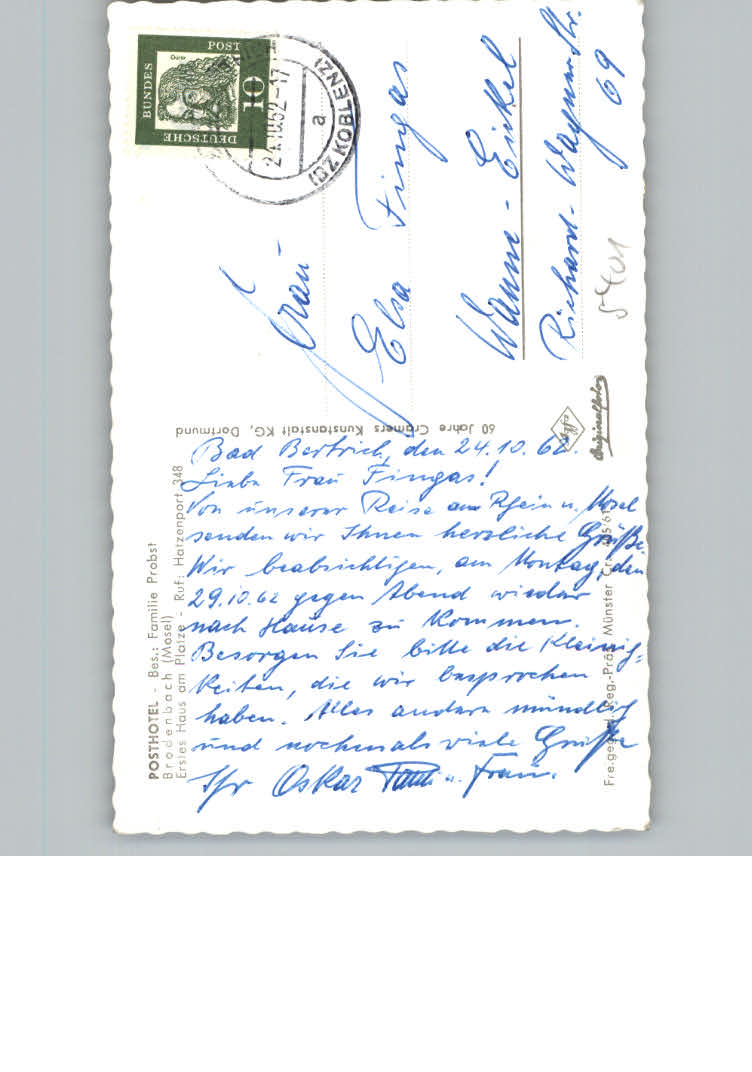 Bad Bertrich, den 24.10.62.
Liebe Frau Fingas!
Von unserer Reise am Rhein u. Mosel
senden wir Ihnen herzliche Grüße.
Wir beabsichtigen, am Montag, den
29.10.62 gegen Abend wieder
nach Hause zu kommen.
Besorgen Sie bitte die Kleinig=
keiten, die wir besprochen
haben. Alles andere mündlich
und nochmals viele Grüße
Ihr Oskar u. Frau.
Frau
Elsa Fingas
Wanne-Eickel
Richard-Wagner-Str.
69
5401
DEUTSCHE
BUNDES
POST
10
24.10.62-17
a
(BZ KOBLENZ)
POSTHOTEL - Bes.: Familie Probst
Brodenbach (Mosel)
Erstes Haus am Platze - Ruf: Hatzenport 348
60 Jahre Cramers Kunstanstalt KG, Dortmund
Agfa
Originalfoto
Frei.gegeb. Reg.-Präs. Münster